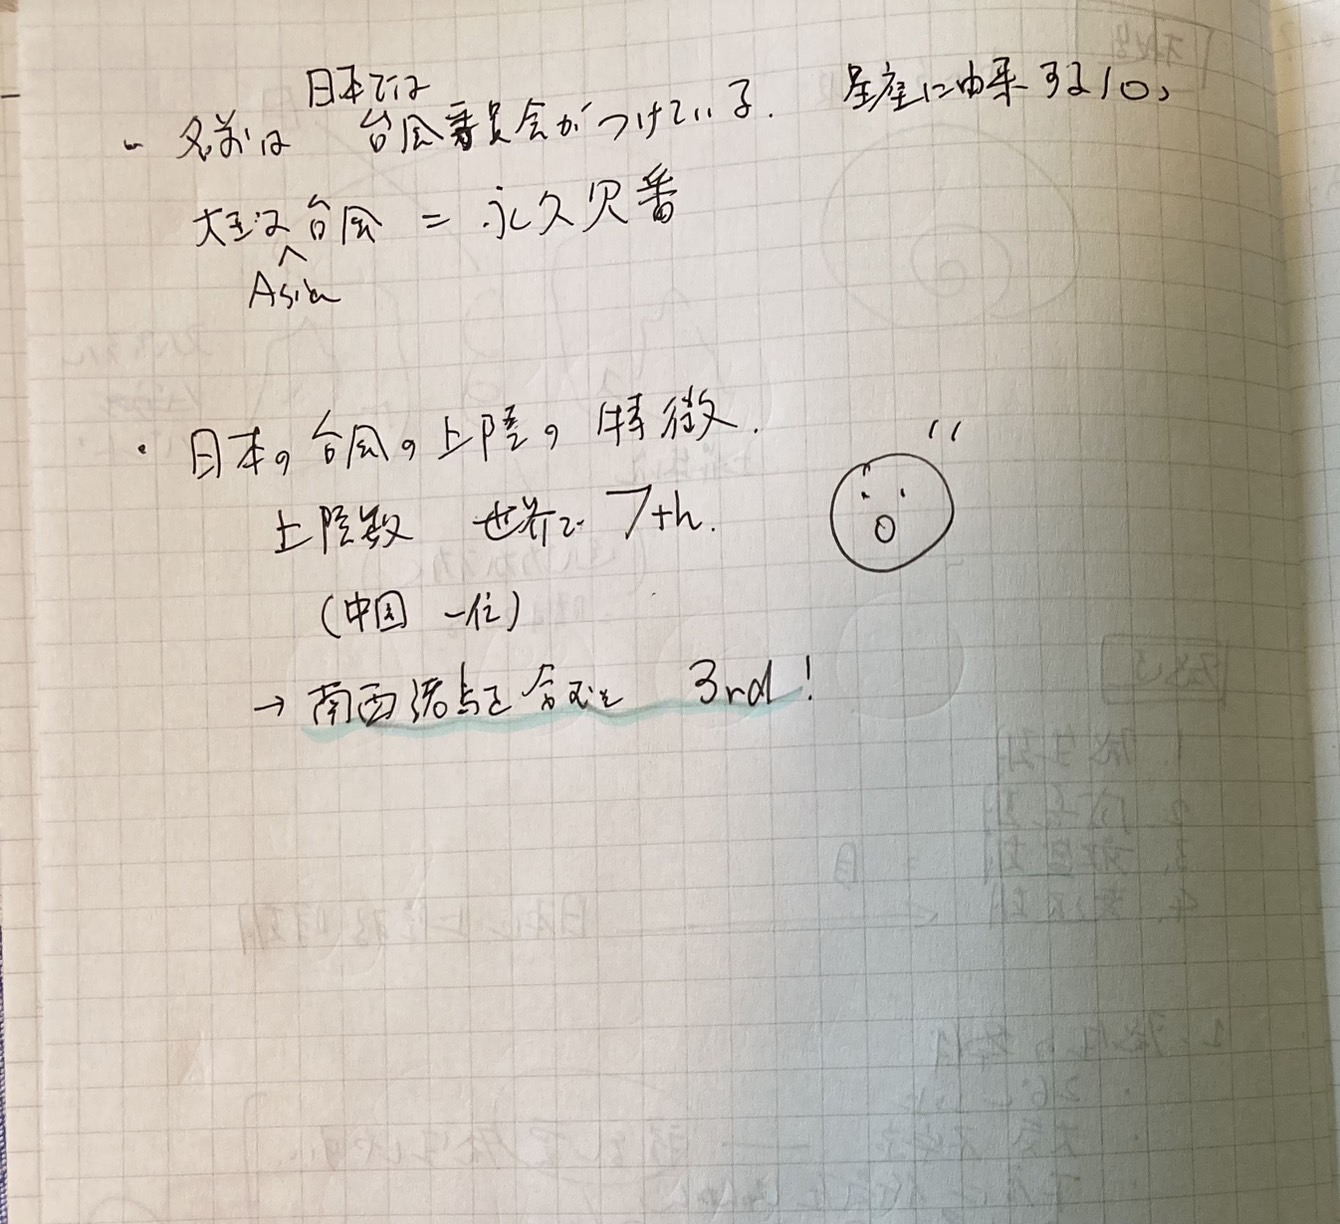 日本では
- 名前は 台風委員会がつけている. 星座に由来する10コ
大型な台風 = 永久欠番
^
Asia
・日本の台風の上陸の特徴.
上陸数 世界で 7th.
(中国 一位)
→ 南西諸島を含むと 3rd!